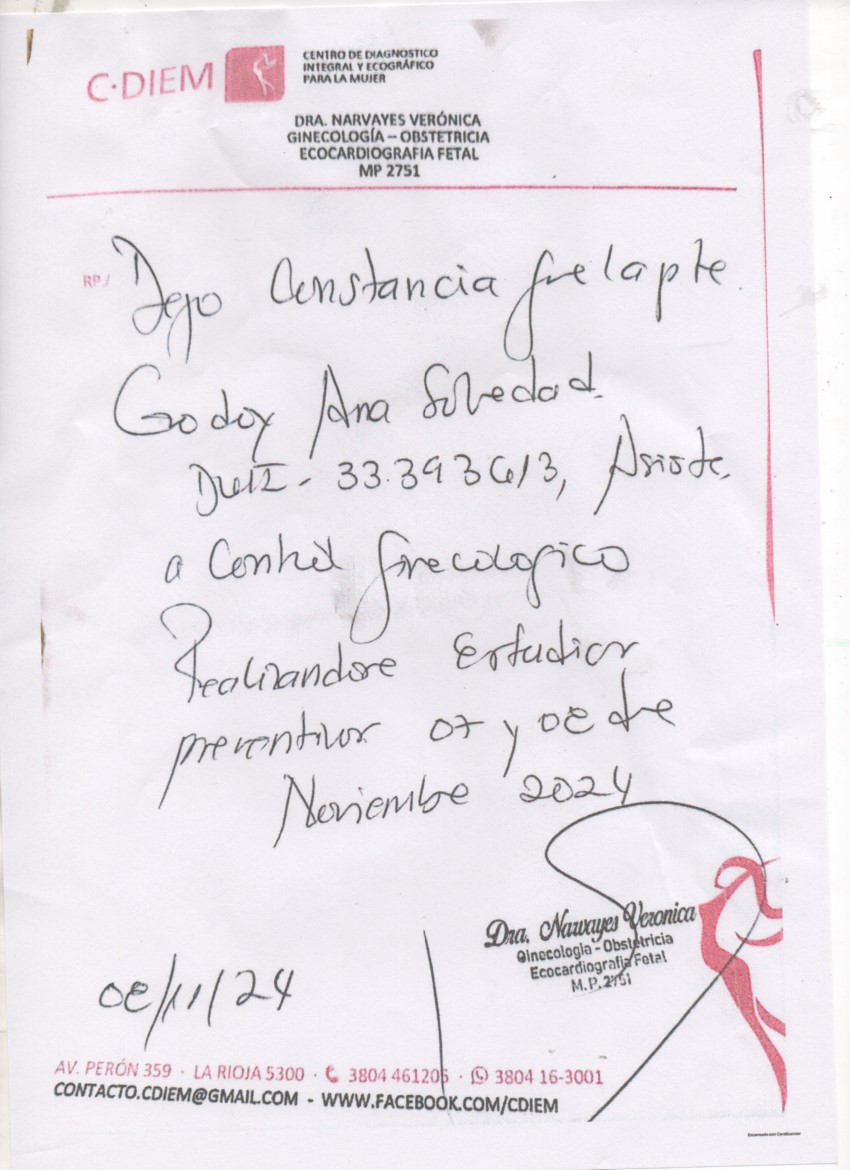 C·DIEM
CENTRO DE DIAGNOSTICO
INTEGRAL Y ECOGRÁFICO
PARA LA MUJER
DRA. NARVAYES VERÓNICA
GINECOLOGÍA – OBSTETRICIA
ECOCARDIOGRAFIA FETAL
MP 2751
RP./
Dejo Constancia que la pte.
Godoy Ana Soledad.
DNI - 33.393613, Asiste
a Control ginecologico
Realizandose Estudios
preventivos 07 y 08 de
Noviembre 2024
Dra. Narvayes Veronica
Ginecologia - Obstetricia
Ecocardiografia Fetal
M.P. 2751
08/11/24
AV. PERÓN 359 · LA RIOJA 5300 · 3804 461205 · 3804 16-3001
CONTACTO.CDIEM@GMAIL.COM - WWW.FACEBOOK.COM/CDIEM
Escaneado con CamScanner